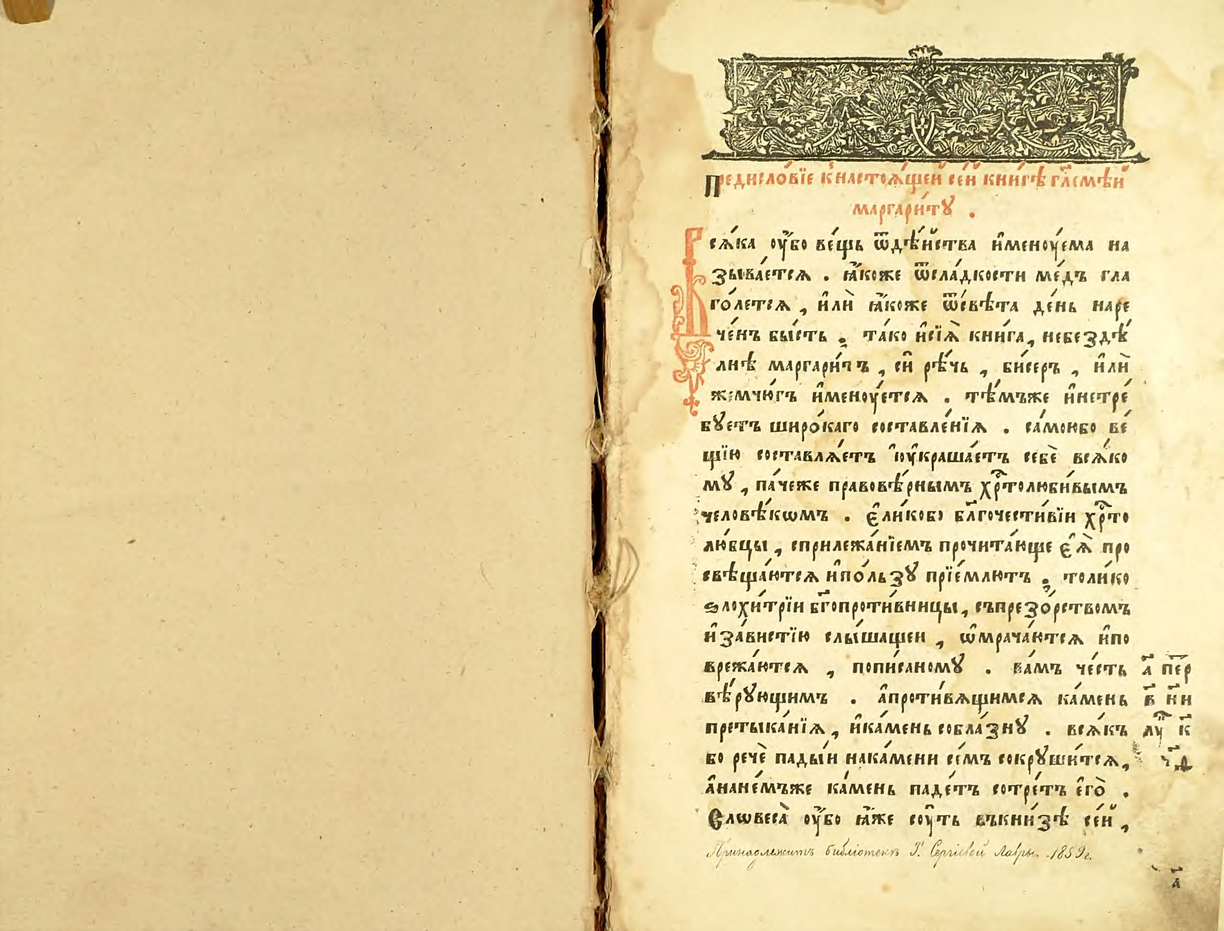 Предисло́вїе к̾настоя́щей се́й кни́гѣ гл҃емѣ́й
маргари́тꙋ .
Вся́ка ᲂу҆́бо ве́щь ѿдѣ́йства и҆менꙋ́ема на
зыва́етсѧ . ꙗ҆́коже ѿсла́дкости ме́дъ гла
го́летсѧ , и҆лѝ ꙗ҆́коже ѿсвѣ́та де́нь наре
че́нъ бы́сть . та́ко и҆сїѧ̀ кни́га , небездѣ́
лнѣ маргари́тъ , си́ рѣ́чь , би́серъ , и҆лѝ
жемчю́гъ и҆менꙋ́етсѧ . тѣ́мъже и҆нетре́
бꙋетъ широ́каго составле́нїѧ . само́юбо ве́
щїю составлѧ́етъ и҆ᲂу҆краша́етъ себѐ всѧ́ко
мꙋ , па́чеже правовѣ́рнымъ хрⷭ҇толюби́вымъ
человѣ́кѡмъ . є҆ли́кобо бл҃гочести́вїи хрⷭ҇то
лю́бцы , сприлежа́нїемъ прочита́юще є҆ѧ̀ про
свѣща́ютсѧ и҆по́льзꙋ прїе́млютъ . толи́ко
ѕлохи́трїи бг҃опроти́вницы , съпрезо́рствомъ
и҆за́вистїю слы́шащеи , ѡ҆мрача́ютсѧ и҆по
врежа́ютсѧ , попи́саномꙋ . ва́мъ че́сть
вѣ́рꙋющимъ . а҆проти́вѧщимсѧ ка́мень
претыка́нїѧ , и҆ка́мень собла́знꙋ . всѧ́къ
бо речѐ пады́и на ка́мени се́мъ сокрꙋши́тсѧ ,
а҆нане́мъже ка́мень паде́тъ сотре́тъ є҆го̀ .
Словеса̀ ᲂу҆́бо ꙗ҆́же сꙋ́ть въкни́зѣ се́й ,
а҃ пер
в҃ ни
лꙋⷦ҇ к҃
Принадлежитъ библіотекѣ Т. Сергіевой Лавры. 1859 г.
а҃